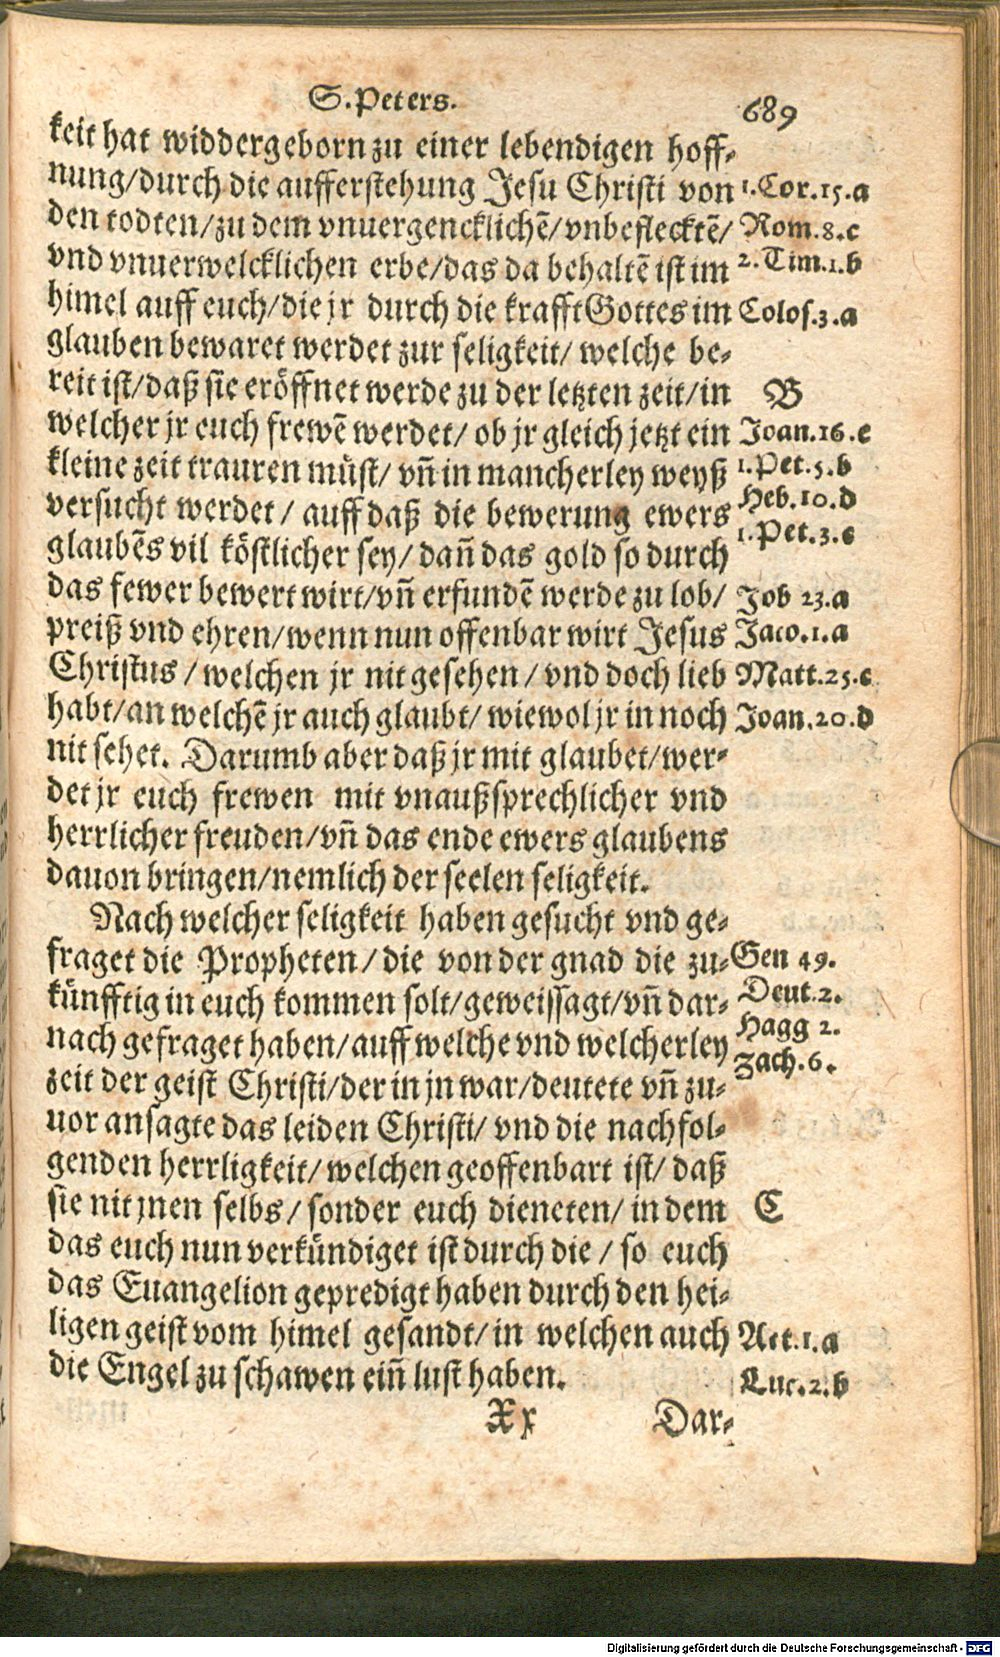 S. Peters. 689
keit hat widdergeborn zu einer lebendigen hoff-
nung/durch die aufferstehung Jesu Christi von 1. Cor. 15. a
den todten/zu dem vnuergencklichẽ/vnbeflecktẽ/ Rom. 8. c
vnd vnuerwelcklichen erbe/das da behaltẽ ist im 2. Tim. 1. b
himel auff euch/die jr durch die krafft Gottes im Colos. 3. a
glauben bewaret werdet zur seligkeit/ welche be-
reit ist/daß sie eröffnet werde zu der letzten zeit/in B
welcher jr euch frewẽ werdet/ ob jr gleich jetzt ein Joan. 16. e
kleine zeit trauren müst/ vñ in mancherley weyß 1. Pet. 5. b
versucht werdet / auff daß die bewerung ewers Heb. 10. d
glaubẽs vil köstlicher sey/ dañ das gold so durch 1. Pet. 3. c
das fewer bewert wirt/vñ erfundẽ werde zu lob/ Job 23. a
preiß vnd ehren/wenn nun offenbar wirt Jesus Jaco. 1. a
Christus / welchen jr nit gesehen / vnd doch lieb Matt. 25. c
habt/an welchẽ jr auch glaubt/ wiewol jr in noch Joan. 20. d
nit sehet. Darumb aber daß jr mit glaubet/wer-
det jr euch frewen mit vnaußsprechlicher vnd
herrlicher freuden/vñ das ende ewers glaubens
dauon bringen/nemlich der seelen seligkeit.
Nach welcher seligkeit haben gesucht vnd ge-
fraget die Propheten / die von der gnad die zu- Gen 49.
künfftig in euch kommen solt/geweissagt/vñ dar- Deut. 2.
nach gefraget haben/auff welche vnd welcherley Hagg 2.
zeit der geist Christi/der in jn war/deutete vñ zu- Zach. 6.
uor ansagte das leiden Christi/ vnd die nachfol-
genden herrligkeit/welchen geoffenbart ist/ daß
sie nit jnen selbs / sonder euch dieneten/ in dem C
das euch nun verkündiget ist durch die / so euch
das Euangelion gepredigt haben durch den hei-
ligen geist vom himel gesandt/in welchen auch Act. 1. a
die Engel zu schawen eiñ lust haben. Luc. 2. b
Xx Dar-
Digitalisierung gefördert durch die Deutsche Forschungsgemeinschaft - DFG